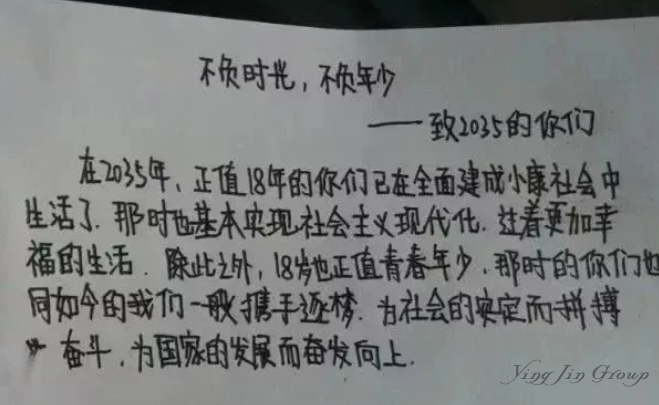 不负时光，不负年少
——致2035的你们
在2035年、正值18年的你们已在全面建成小康社会中
生活了.那时也基本实现社会主义现代化.过着更加幸
福的生活.除此之外，18岁也正值青春年少、那时的你们也
同如今的我们一般携手逐梦.为社会的安定而拼搏
奋斗、为国家的发展而奋发向上.
Ying Jin Group